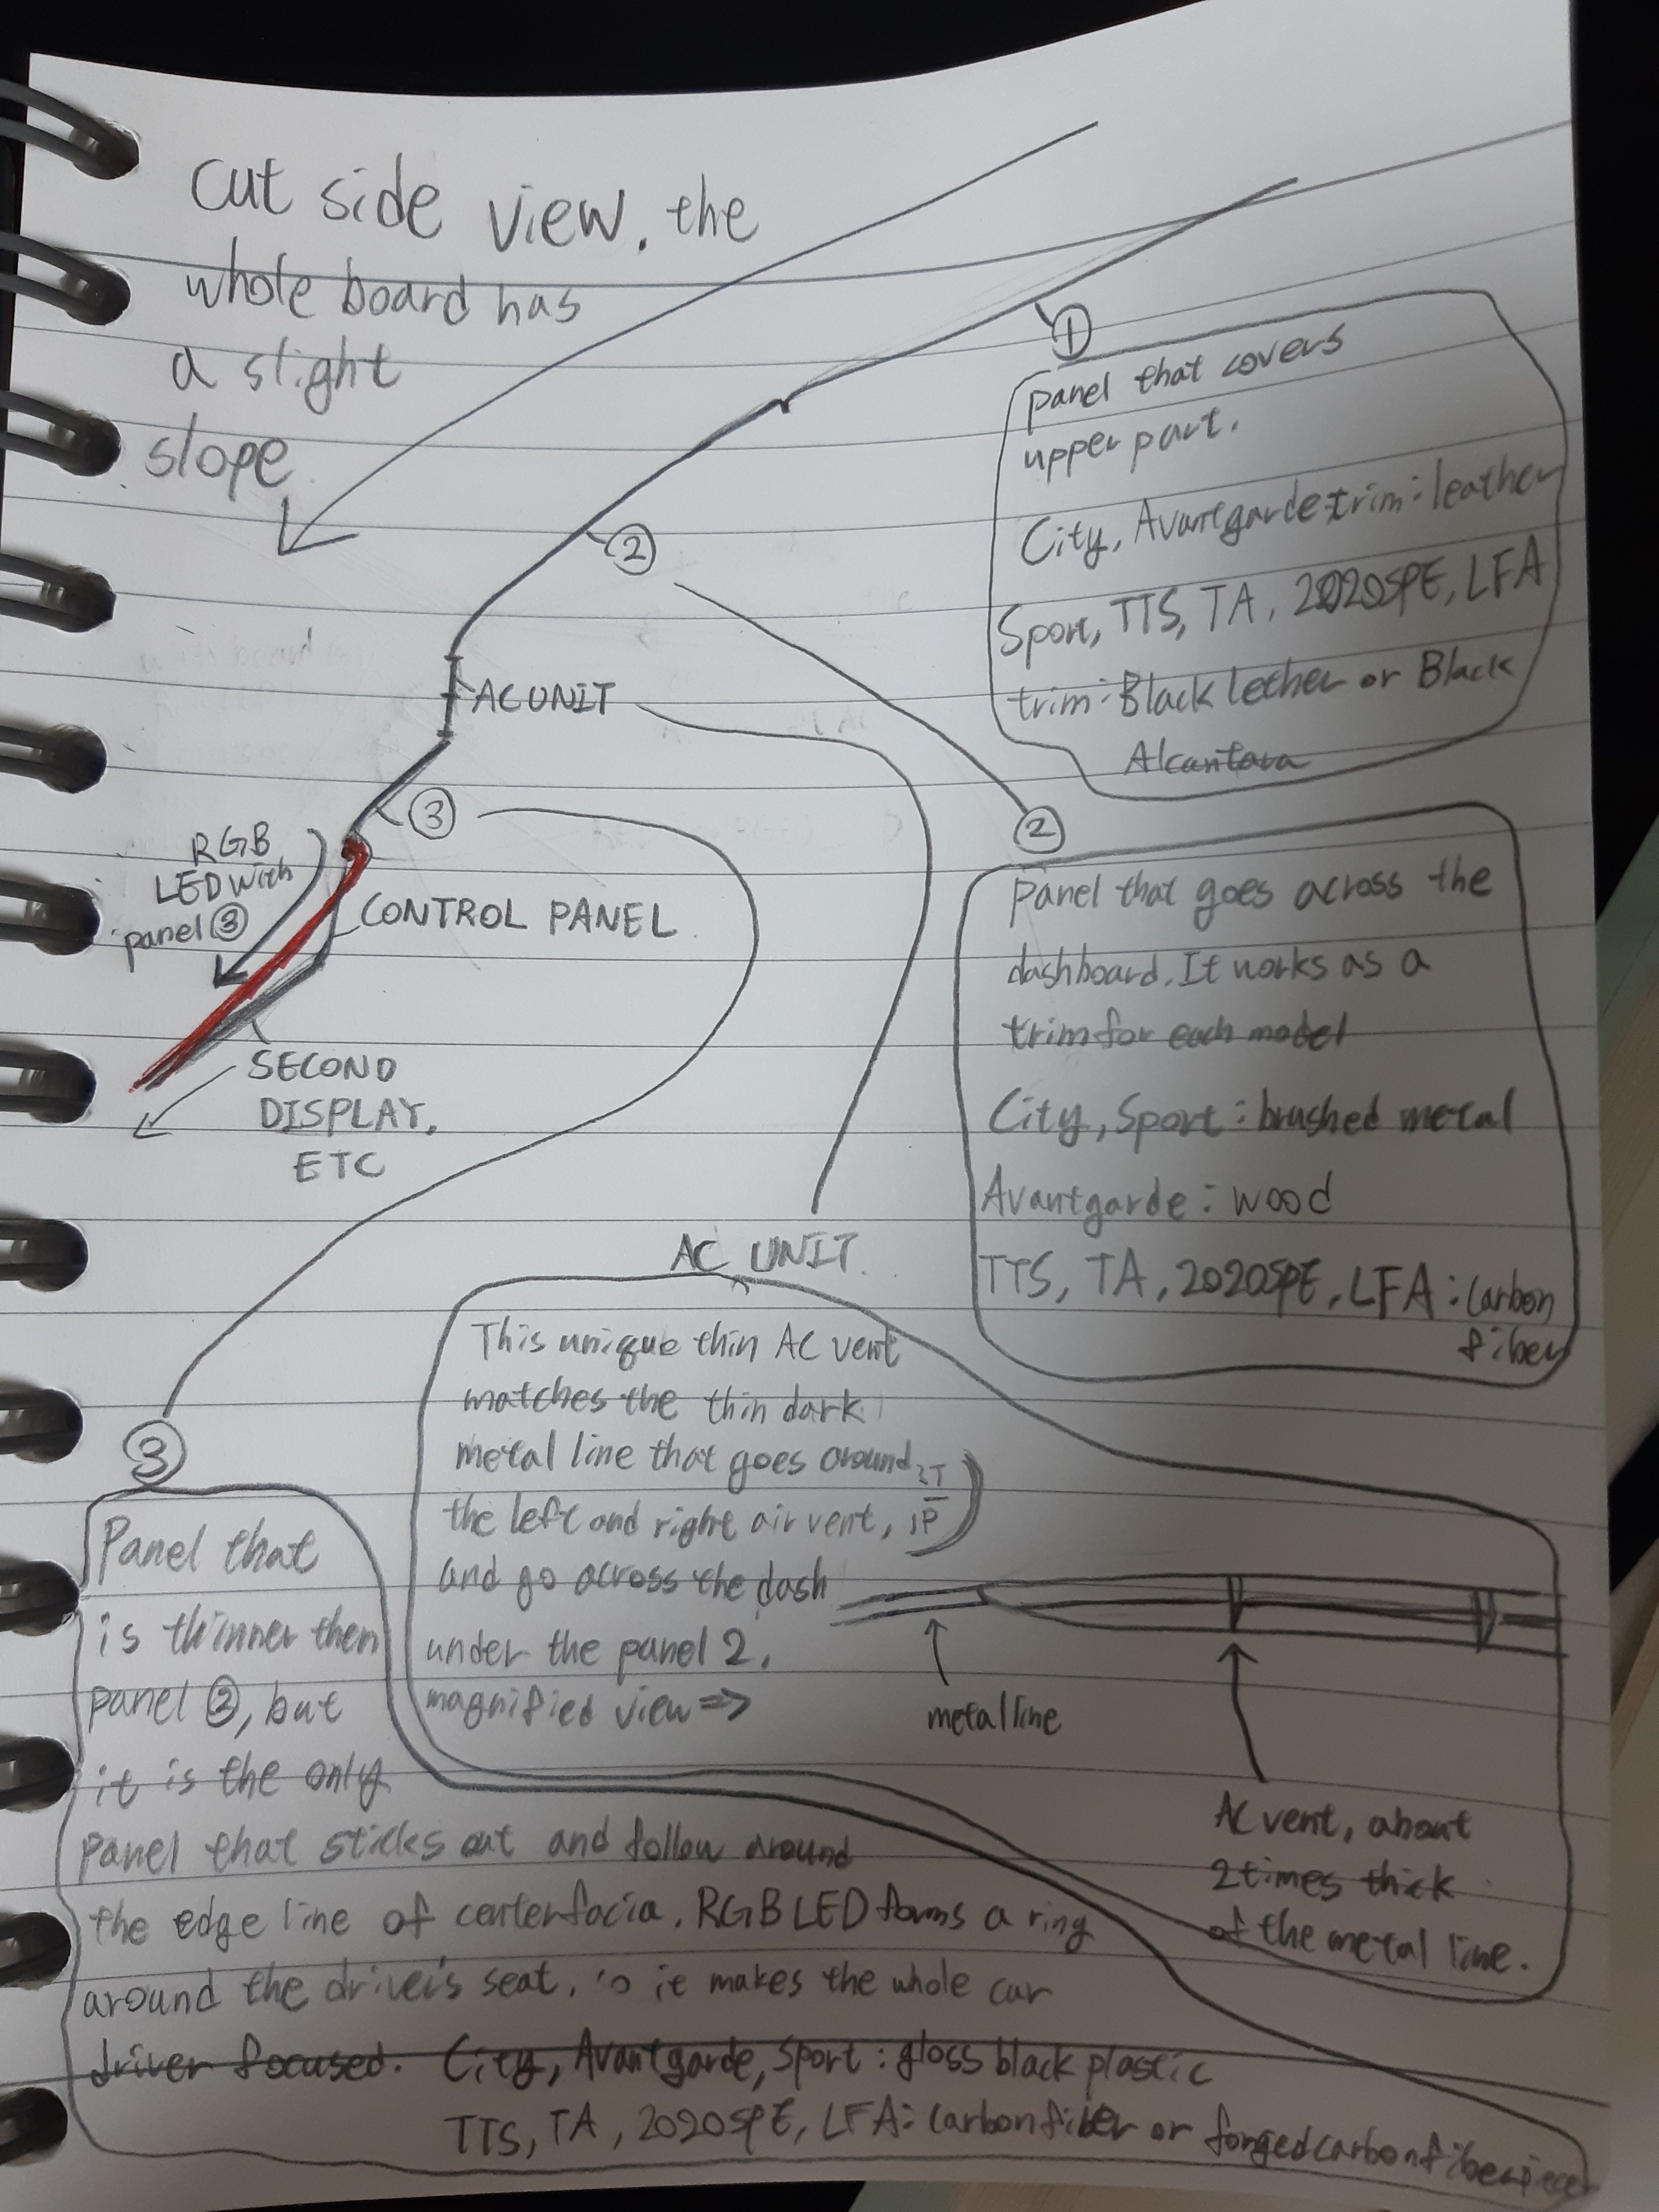 cut side view. the
whole board has
a slight
slope
①
panel that covers
upper part.
City, Avantgarde trim : leather
Sport, TTS, TA, 2020SPE, LFA
trim : Black lether or Black
Alcantara
②
AC UNIT
③
RGB
LED with
panel ③
CONTROL PANEL
SECOND
DISPLAY,
ETC
②
panel that goes across the
dashboard. It works as a
trim for each model
City, Sport : brushed metal
Avantgarde : wood
TTS, TA, 2020SPE, LFA : carbon
fiber
AC UNIT.
This unique thin AC vent
matches the thin dark
metal line that goes around
the left and right air vent,
and go across the dash
under the panel 2.
magnified view =>
metal line
AC vent, about
2 times thick
of the metal line.
③
Panel that
is thinner then
panel ②, but
it is the only
panel that sticks out and follow around
the edge line of centerfacia. RGB LED forms a ring
around the driver's seat, so it makes the whole car
driver focused. City, Avantgarde, Sport : gloss black plastic
TTS, TA, 2020SPE, LFA : carbonfiber or forgedcarbonfiberpiece